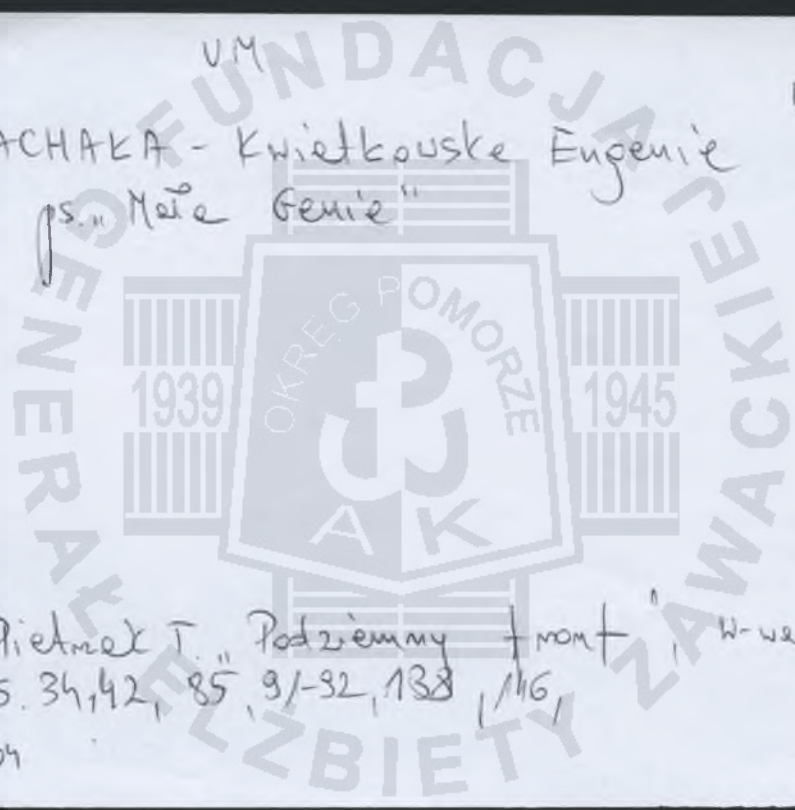 VM
ACHAŁA - Kwiatkowska Eugenia
ps. „Mała Genia"
Pietrzak T. „Podziemny front", W-wa
s. 34, 42, 85, 91-92, 138, 146,
04
FUNDACJA GENERAŁ ELŻBIETY ZAWACKIEJ
OKRĘG POMORZE
1939
1945
AK